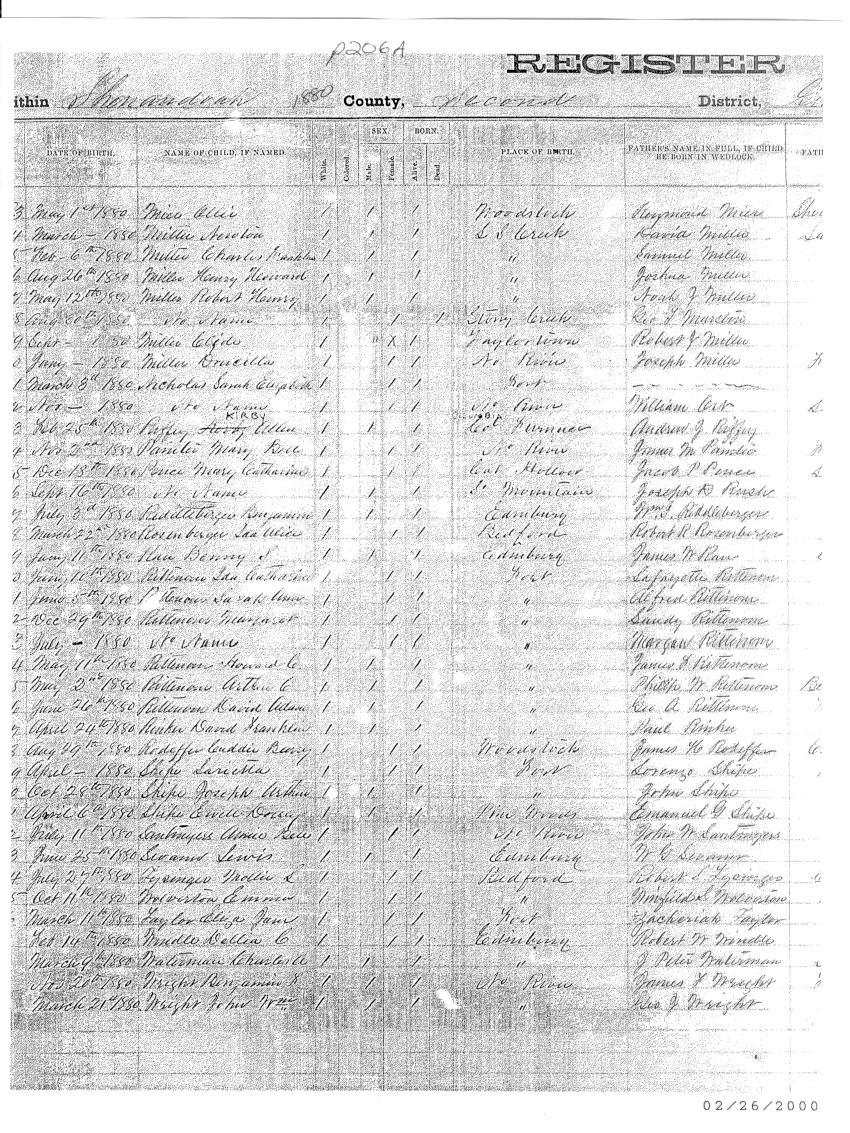 p206A
REGISTER
ithin Shenandoah 1880 County, Second District,
DATE OF BIRTH. NAME OF CHILD, IF NAMED. White. Colored. SEX. Male. Female. BORN. Alive. Dead. PLACE OF BIRTH. FATHER'S NAME IN FULL, IF CHILD BE BORN IN WEDLOCK. FATH
3 May 1st 1880 Mier Ollie 1 1 1 Woodstock Raymond Mier
4 March - 1880 Miller Newton 1 1 1 S S Creek David Miller
5 Feb - 6th 1880 Miller Charles Franklin 1 1 1 " Samuel Miller
6 Aug 26th 1880 Miller Henry Howard 1 1 1 " Joshua Miller
7 May 12th 1880 Miller Robert Henry 1 1 1 " Noah J Miller
8 Aug 1880 No Name 1 1 1 Stony Creek Geo
9 Sept - 1880 Miller Clyde 1 X 1 Taylortown Robert J Miller
0 Jany - 1880 Miller Drucilla 1 1 1 No River Joseph Miller
1 March 3d 1880 Nicholas Sarah Elizabeth 1 1 1 Fort - - - -
2 Nov - 1880 No Name 1 1 1 No River William
3 Feb 25th 1880 Riffey KIRBY Allen 1 1 1 Columbia Furnace Andrew J Riffey
4 Nov 2nd 1880 Mary 1 1 1 No River James M
5 Dec 18th 1880 Pence Mary Catharine 1 1 1 Hollow Jacob P Pence
6 Sept 16th 1880 No Name 1 1 1 Mountain Joseph
7 July 3d 1880 Benjamin 1 1 1 Edinburg Riddleberger
8 March 22nd 1880 Rosenberger Ida Alice 1 1 1 Bedford Robert R Rosenberger
9 Jany 11th 1880 Rau Benny S 1 1 1 Edinburg James W Rau
0 10th 1880 Rittenour Ida Catharine 1 1 1 Fort Lafayette Rittenour
1 June 5th 1880 Sarah 1 1 1 " Alfred Rittenour
2 Dec 29th 1880 Rittenour Margaret 1 1 1 " Sandy Rittenour
3 July - 1880 No Name 1 1 1 " Morgan Rittenour
4 May 11th 1880 Rittenour Howard C. 1 1 1 " James Rittenour
5 May 2nd 1880 Rittenour Arthur C 1 1 1 " Philip W Rittenour
6 June 26th 1880 Rittenour David Adam 1 1 1 " Geo A Rittenour
7 April 24th 1880 Rinker David Franklin 1 1 1 " Paul Rinker
8 Aug 29th 1880 Rodeffer 1 1 1 Woodstock James H Rodeffer
9 April - 1880 Shipe 1 1 1 Fort Lorenzo Shipe
0 Oct 28th 1880 Shipe Joseph Arthur 1 1 1 " John Shipe
April 6th 1880 Shipe 1 1 1 Pine Woods Emanuel G Shipe
2 July 11th 1880 Santmyers Annie Bell 1 1 1 No River John W Santmyers
3 June 25th 1880 Lewis 1 1 1 Edinburg W G
4 July 27th 1880 Mollie 1 1 1 Bedford Robert S
5 Oct 11th 1880 Wolverton Emma 1 1 1 " Winfield S Wolverton
March 11th 1880 Taylor Eliza Jane 1 1 1 Fort Zachariah Taylor
Feb 14th 1880 Windle Dellia C 1 1 1 Edinburg Robert W Windle
March 9th 1880 Waterman Charles 1 1 1 " J Peter Waterman
Nov 20th 1880 Wright Benjamin 1 1 1 No River James Wright
March 21st 1880 Wright John Wm 1 1 1 " Geo J Wright
02/26/2000